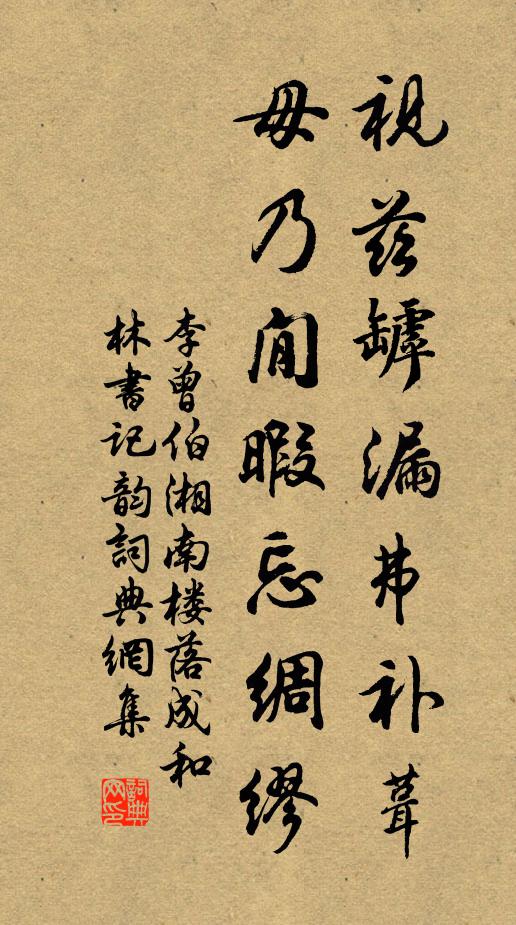 視茲罅漏弗补葺
毋乃閒暇忘綢繆
李曾伯湘南楼落成和
林書記韵詞典網集
詞典网印